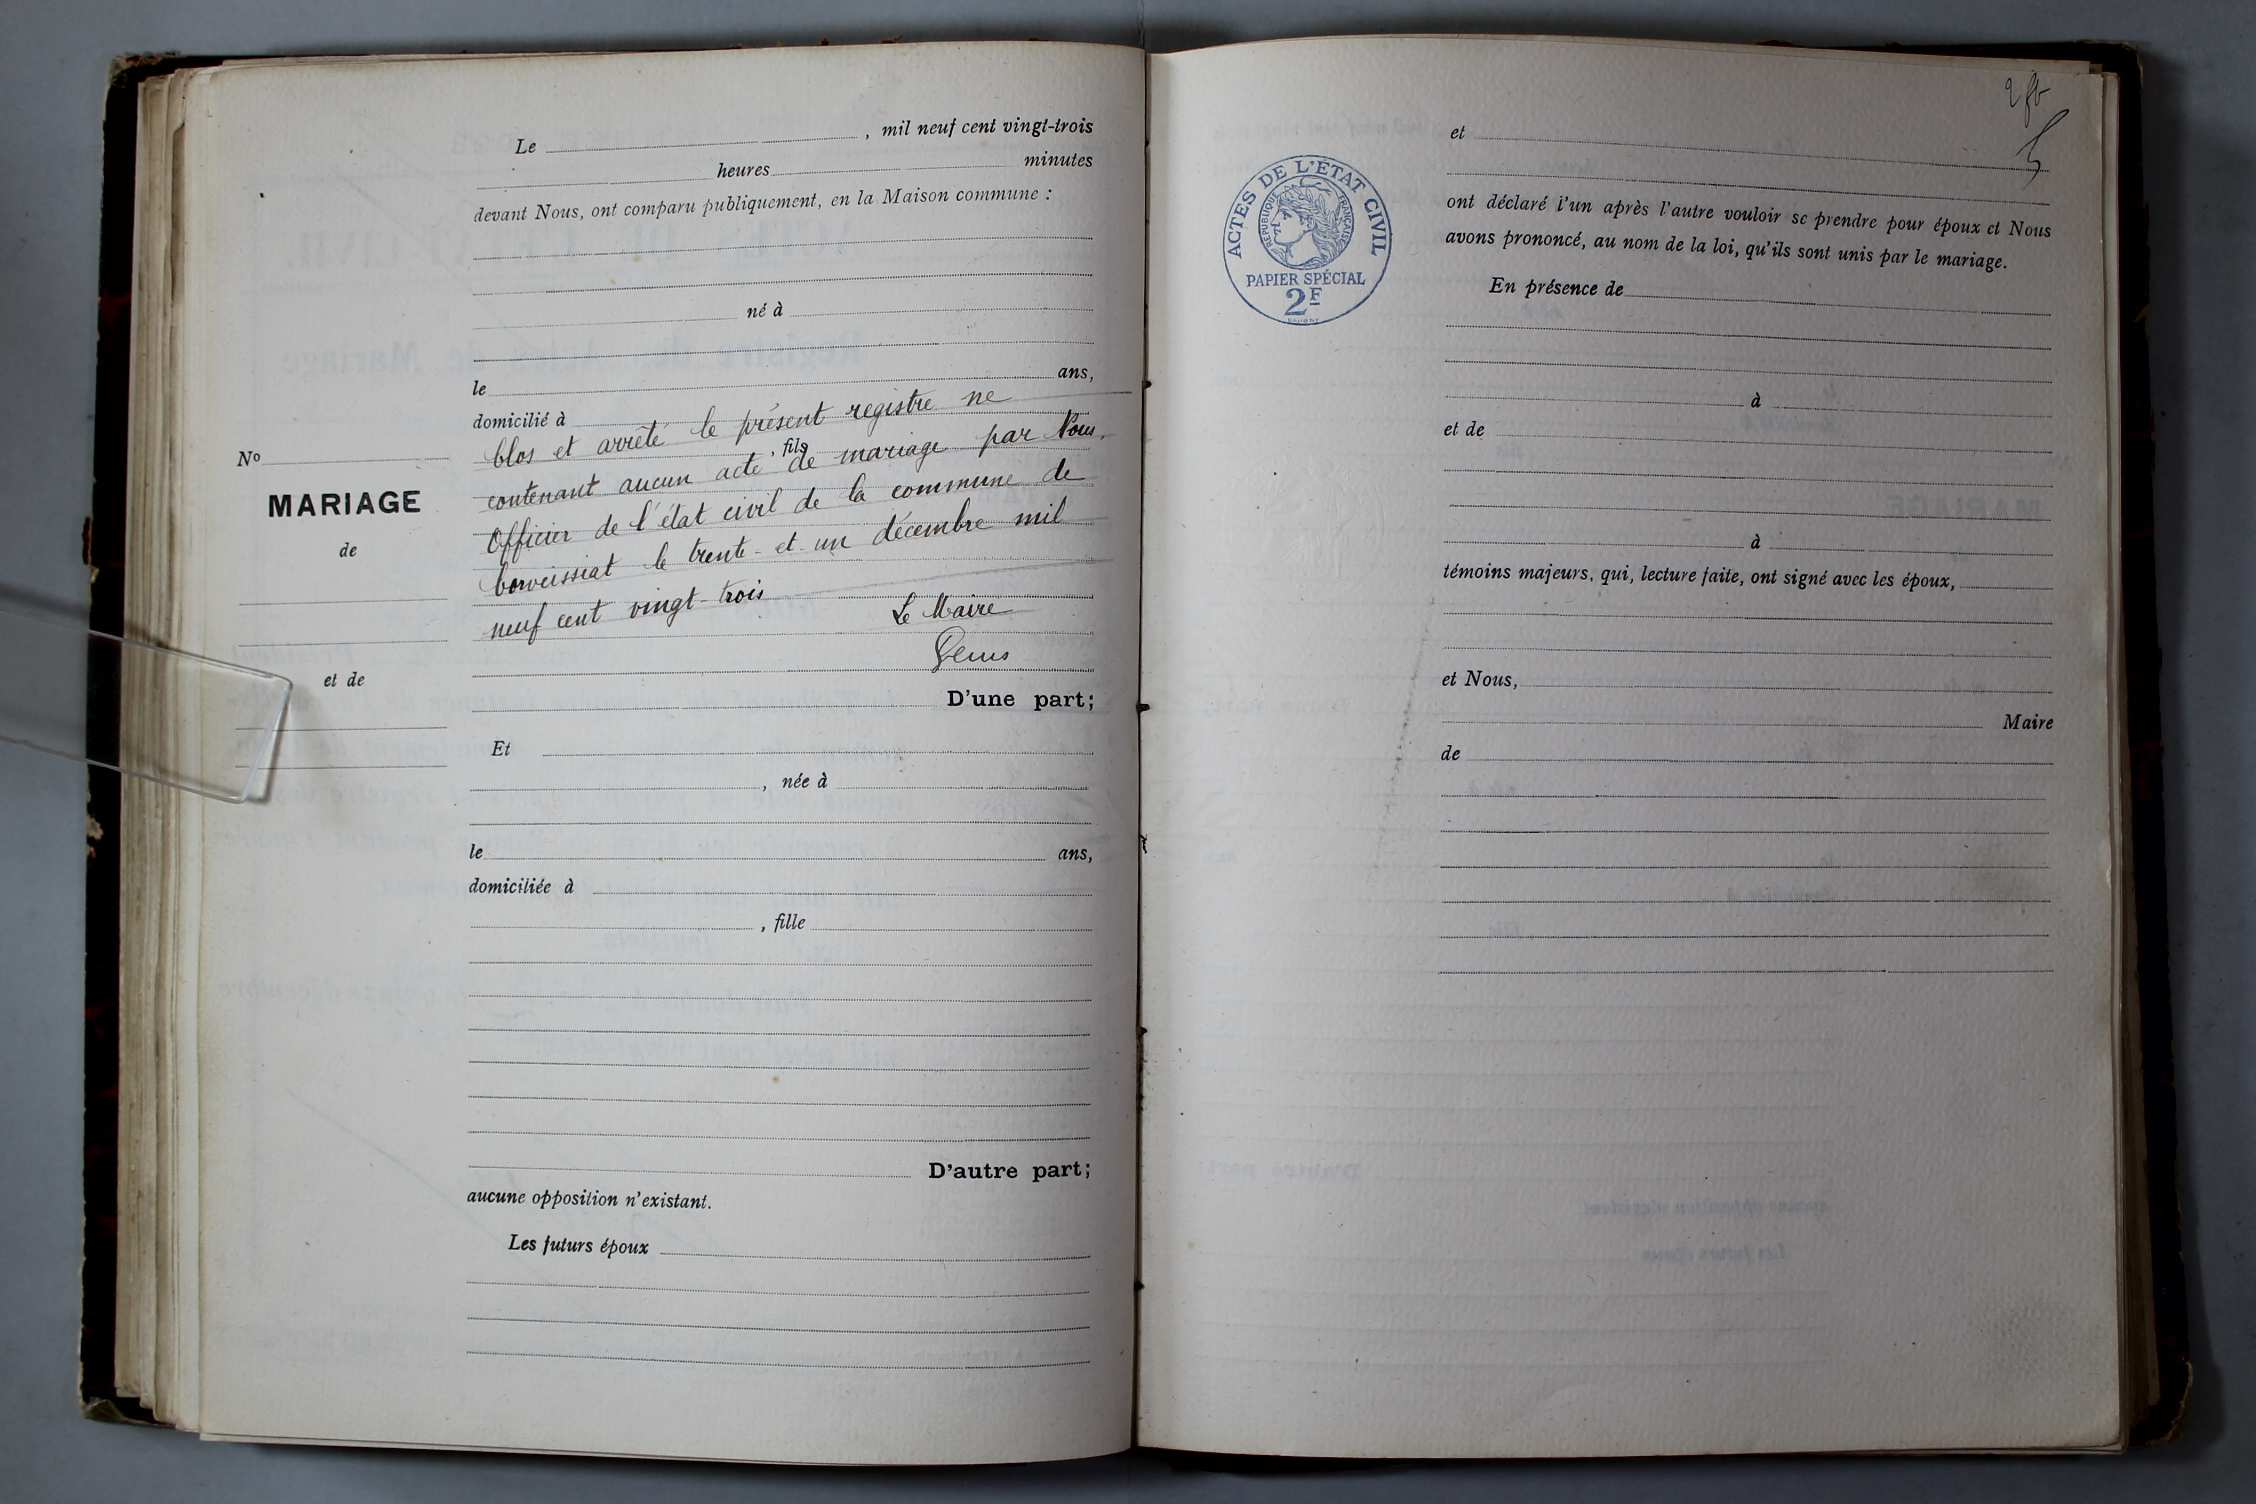 Le , mil neuf cent vingt-trois
heures minutes
devant Nous, ont comparu publiquement, en la Maison commune :
né à
le ans,
domicilié à
Clos et arrêté le présent registre ne
, fils
contenant aucun acte de mariage par Nous
Officier de l'état civil de la commune de
Corveissiat le trente-et-un décembre mil
neuf cent vingt-trois
Le Maire
D'une part;
No
MARIAGE
de
et de
Et
, née à
le ans,
domiciliée à
, fille
D'autre part;
aucune opposition n'existant.
Les futurs époux
ACTES DE L'ÉTAT CIVIL
RÉPUBLIQUE FRANÇAISE
PAPIER SPÉCIAL
2F
et
ont déclaré l'un après l'autre vouloir se prendre pour époux et Nous
avons prononcé, au nom de la loi, qu'ils sont unis par le mariage.
En présence de
à
et de
à
témoins majeurs, qui, lecture faite, ont signé avec les époux,
et Nous,
Maire
de